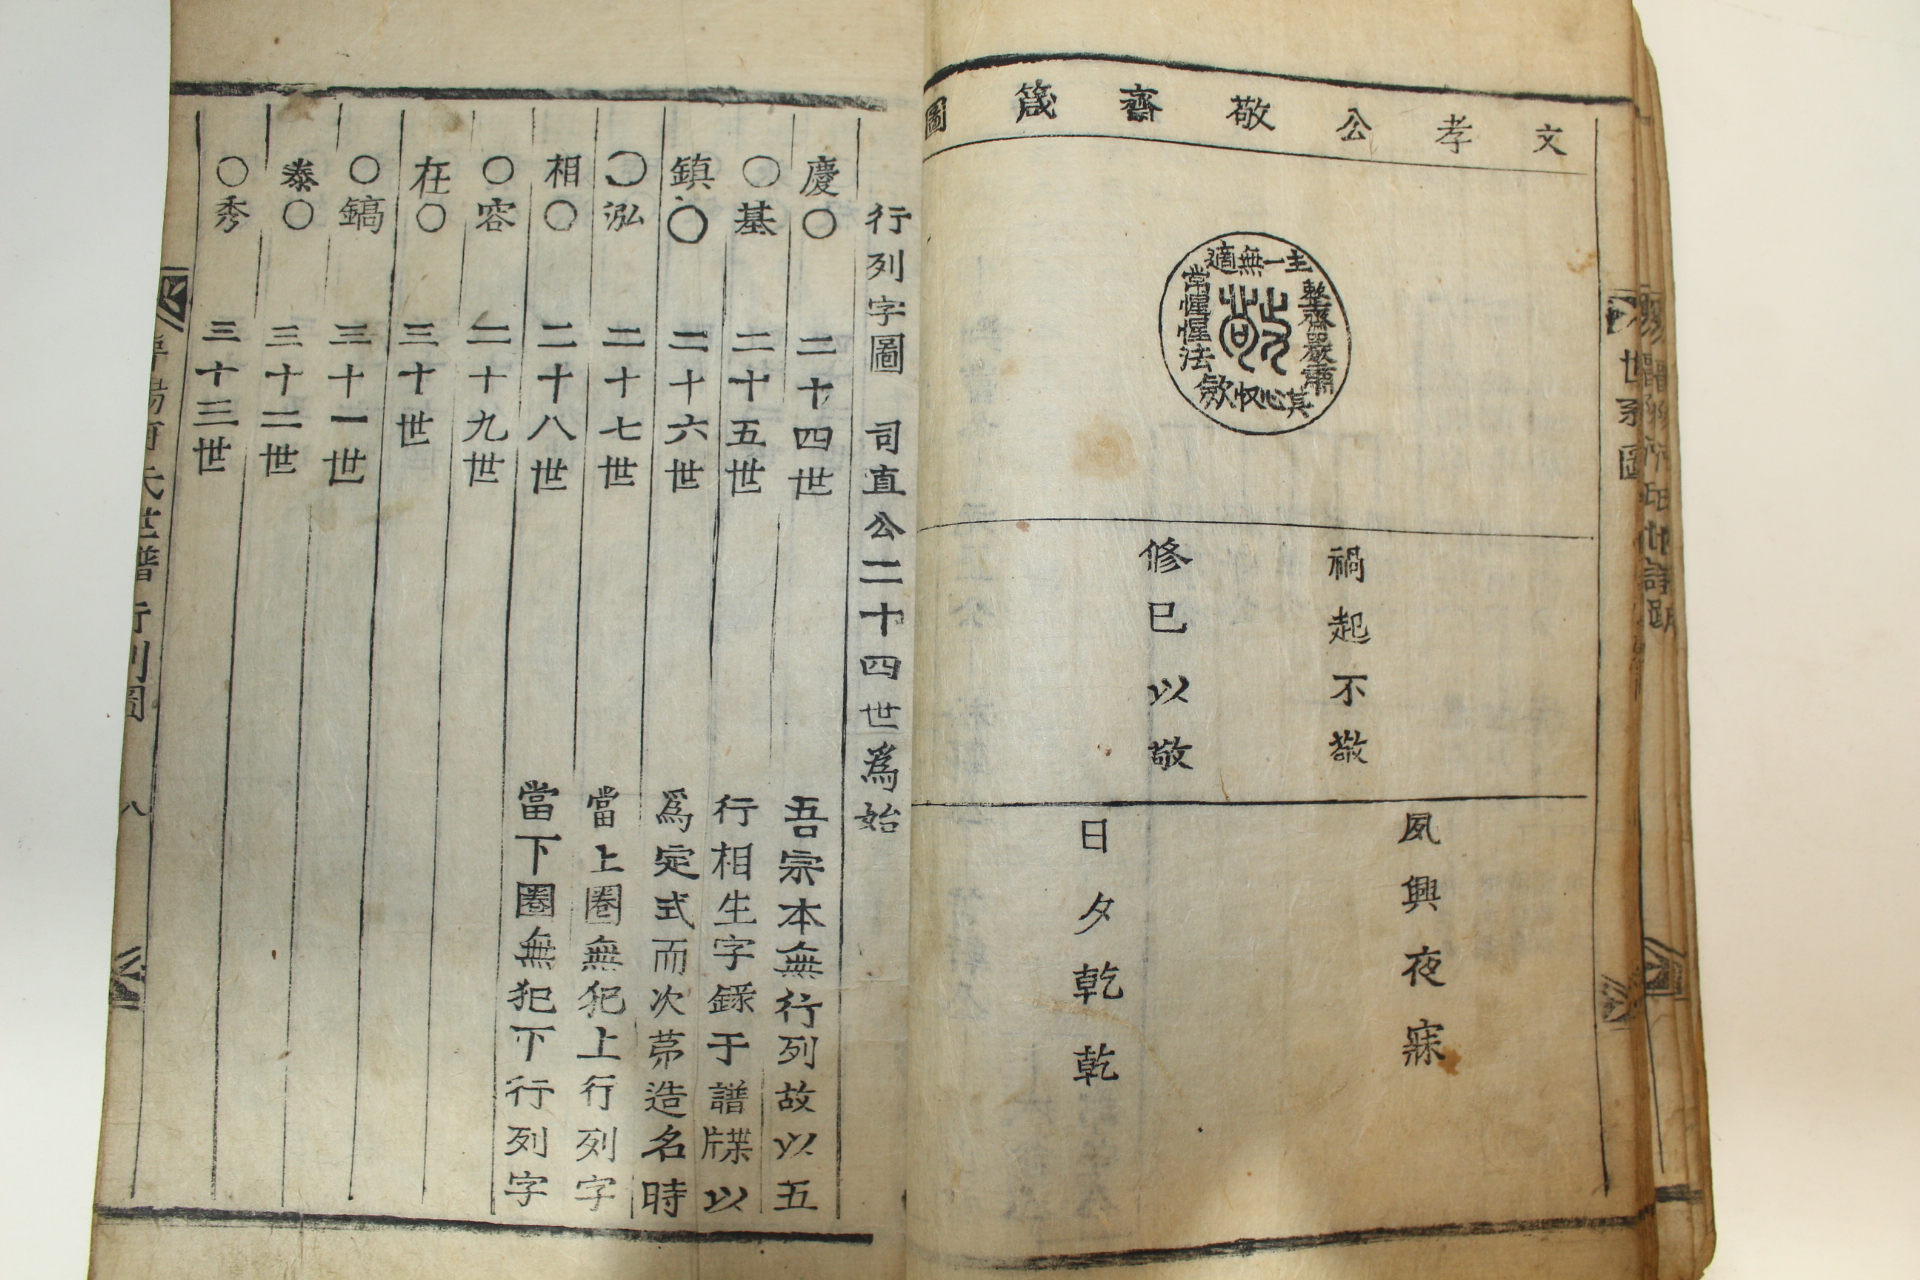 文孝公敬齋箴圖
主一無適
整齊嚴肅
其心收斂
常惺惺法
敬
禍起不敬
修已以敬
夙興夜寐
日夕乾乾
世系圖
行列字圖 司直公二十四世爲始
慶〇 二十四世
〇基 二十五世
鎮〇 二十六世
〇泓 二十七世
相〇 二十八世
〇容 二十九世
在〇 三十世
〇鎬 三十一世
泰〇 三十二世
〇秀 三十三世
吾宗本無行列故以五
行相生字錄于譜牒以
爲定式而次苐造名時
當上圈無犯上行列字
當下圈無犯下行列字
氏世譜 行列圖 八